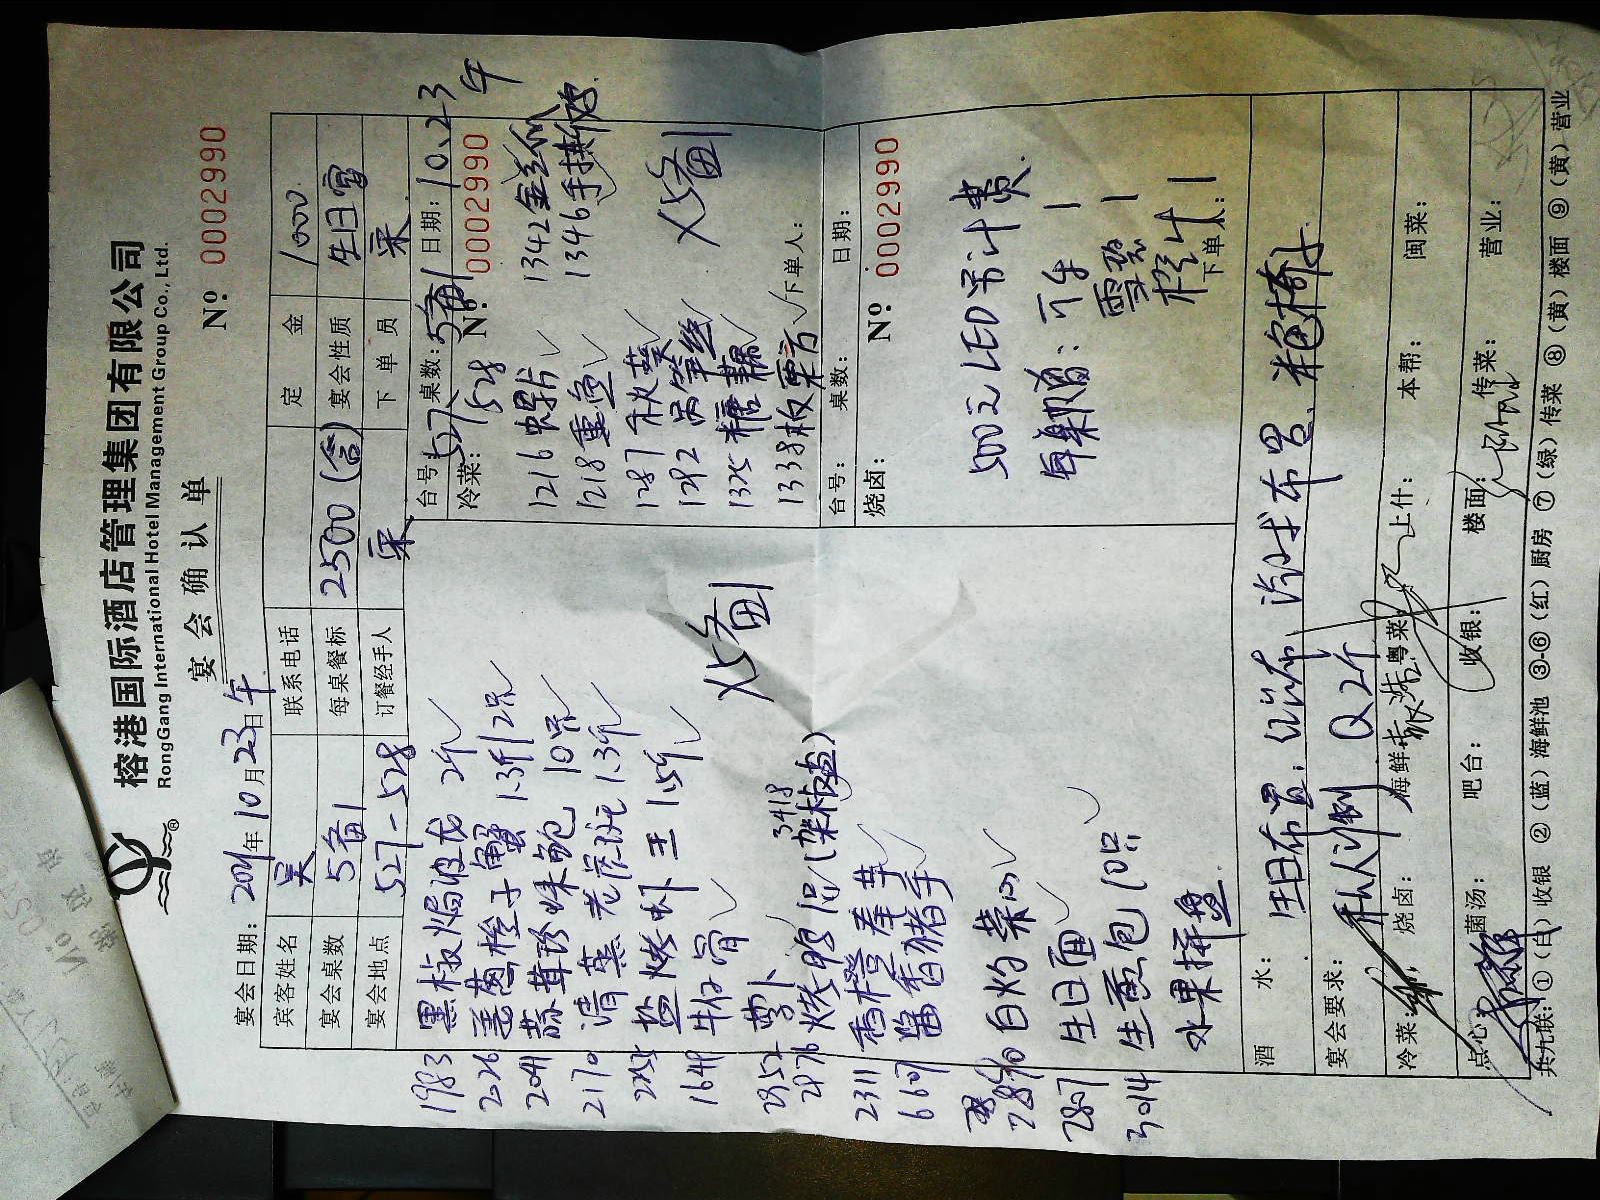 榕港国际酒店管理集团有限公司
RongGang International Hotel Management Group Co., Ltd.
®
宴会确认单
№: 0002990
宴会日期: 年10月23日午
宾客姓名 吴 联系电话 定金 1000.
宴会桌数 5备1 每桌餐标 2500(含) 宴会性质 生日宴
宴会地点 527-528 订餐经手人 下单员
1983 黑椒焗波龙 2斤
2026 姜葱橙子蟹 1.3斤/2只
2041 蒜茸珍珠鲍 10只
2170 清蒸老虎斑 1.3斤
盐烤虾王 1.5斤
牛仔骨
2352 萝卜
2876 烤鸭 3418
2311 香橙
6607 酱香猪手
白灼菜心
2807 生日面
3014 生煎包 10只
水果拼盘
X5备1
台号: 527 528 桌数: 5备1 日期: 10.23午
冷菜: №: 0002990
1216 螺片 1342 金丝
1218 熏鱼 1346 手
1287 秋葵
1292 笋丝
1325 糖藕
1338 板栗
X5备1
下单人:
台号: 桌数: 日期:
烧卤: №: 0002990
500元LED另计费.
每桌赠: 可乐1
雪碧1
橙汁1
下单人:
酒水: 生日布置, 红布, 沙布置, 椅
宴会要求: 私人订制 Q2个
冷菜: 烧卤: 海鲜: 粤菜: 上什: 本帮: 闽菜:
点心: 菌汤: 吧台: 收银: 楼面: 传菜: 营业:
共九联: ①(白)收银 ②(蓝)海鲜池 ③-⑥(红)厨房 ⑦(绿)传菜 ⑧(黄)楼面 ⑨(黄)营业